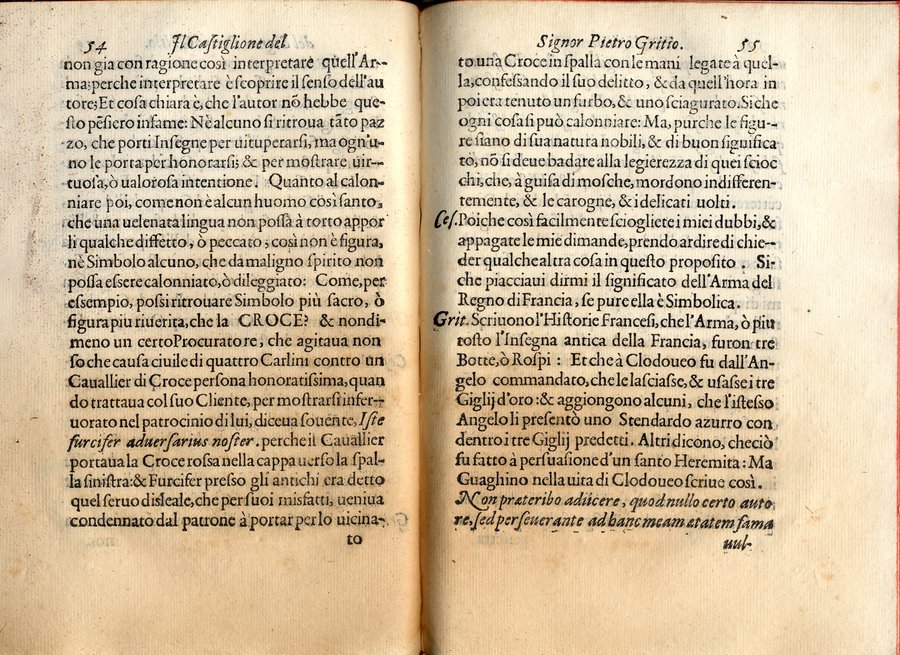 54 Il Caſtiglione del
non gia con ragione così interpretare quell'Ar-
ma; perche interpretare è ſcoprire il ſenſo dell'au
tore; Et coſa chiara è, che l'autor nõ hebbe que-
ſto pẽſiero infame: Nè alcuno ſi ritroua tãto paz
zo, che porti Inſegne per uituperarſi, ma ogn'u-
no le porta per honorarſi; & per moſtrare uir-
tuoſa, ò ualoroſa intentione. Quanto al calon-
niare poi, come non è alcun huomo così ſanto,
che una uelenata lingua non poſſa à torto appor
li qualche diffetto, ò peccato; così non è figura,
nè Simbolo alcuno, che da maligno ſpirito non
poſſa eſſere calonniato, ò dileggiato: Come, per
eſſempio, poſſi ritrouare Simbolo più ſacro, ò
figura piu riuerita, che la CROCE? & nondi-
meno un certo Procuratore, che agitaua non
ſo che cauſa ciuile di quattro Carlini contro un
Cauallier di Croce perſona honoratiſſima, quan
do trattaua col ſuo Cliente, per moſtrarſi infer-
uorato nel patrocinio di lui, diceua ſouente, Iſte
furcifer aduerſarius noſter. perche il Cauallier
portaua la Croce roſſa nella cappa uerſo la ſpal-
la ſiniſtra: & Furcifer preſſo gli antichi era detto
quel ſeruo disleale, che per ſuoi misfatti, ueniua
condennato dal patrone à portar per lo uicina-
to
Signor Pietro Gritio. 55
to una Croce in ſpalla con le mani legate à quel-
la, confeſſando il ſuo delitto, & da quell'hora in
poi era tenuto un furbo, & uno ſciagurato. Si che
ogni coſa ſi può calonniare: Ma, purche le figu-
re ſiano di ſua natura nobili, & di buon ſignifica
to, nõ ſi deue badare alla legierezza di quei ſcioc
chi, che, à guiſa di moſche, mordono indifferen-
temente, & le carogne, & i delicati uolti.
Ceſ. Poiche così facilmente ſciogliete i miei dubbi, &
appagate le mie dimande, prendo ardire di chie-
der qualche altra coſa in queſto propoſito. Si-
che piacciaui dirmi il ſignificato dell'Arma del
Regno di Francia, ſe pure ella è Simbolica.
Grit. Scriuono l'Hiſtorie Franceſi, che l'Arma, ò piu
toſto l'Inſegna antica della Francia, furon tre
Botte, ò Roſpi: Et che à Clodoueo fu dall'An-
gelo commandato, che le laſciaſſe, & uſaſſe i tre
Giglij d'oro: & aggiongono alcuni, che l'iſteſſo
Angelo li preſentò uno Stendardo azurro con
dentro i tre Giglij predetti. Altri dicono, che ciò
fu fatto à perſuaſione d'un ſanto Heremita: Ma
Guaghino nella uita di Clodoueo ſcriue così.
Non præteribo adiicere, quod nullo certo auto
re, ſed perſeuerante ad hanc meam ætatem fama
uul-